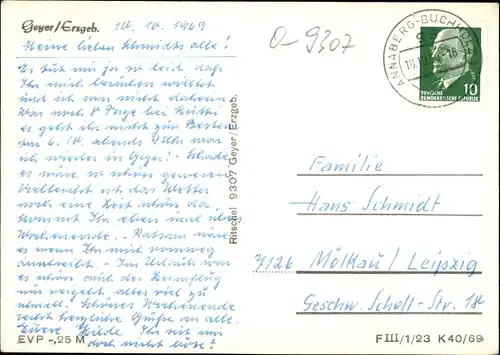 Geyer/Erzgeb. 10.10.1969
O-9307
Meine lieben Schmidts alle!
Es tut mir ja so leid daß
Ihr mich besuchen wolltet
und ich war nicht daheim
War noch 8 Tage bei
es geht ihr nicht zum Besten
am 6.10. abends fuhr man
ich wieder in Geyer! Schade
es wäre so schön gewesen
Vielleicht ist das Wetter
noch eine Zeit schön da
kommt Ihr eben mal übers
Wochenende. Ratsam wäre
es wenn Ihr mir vorweg
Im Urlaub war
es schön auch der Heimflug
nur vergeht alles viel zu
schnell. Schönes Wochenende
recht herzliche Grüße an alle.
Eure Hilde Ihr seit mir
doch nicht böse!
EVP -,25 M
Ritschel 9307 Geyer/Erzgeb.
ANNABERG-BUCHHOLZ
10
DEUTSCHE
DEMOKRATISCHE REPUBLIK
Familie
Hans Schmidt
7126 Mölkau/Leipzig
Geschw. Scholl-Str. 18
F III/1/23 K 40/69